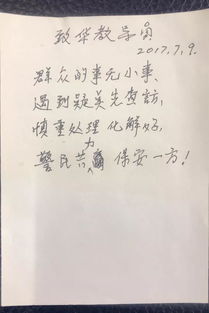 致华教导员
2017.7.9.
群众的事无小事、
遇到疑美先查访，
慎重处理化解好，
警民苦力 保安一方！